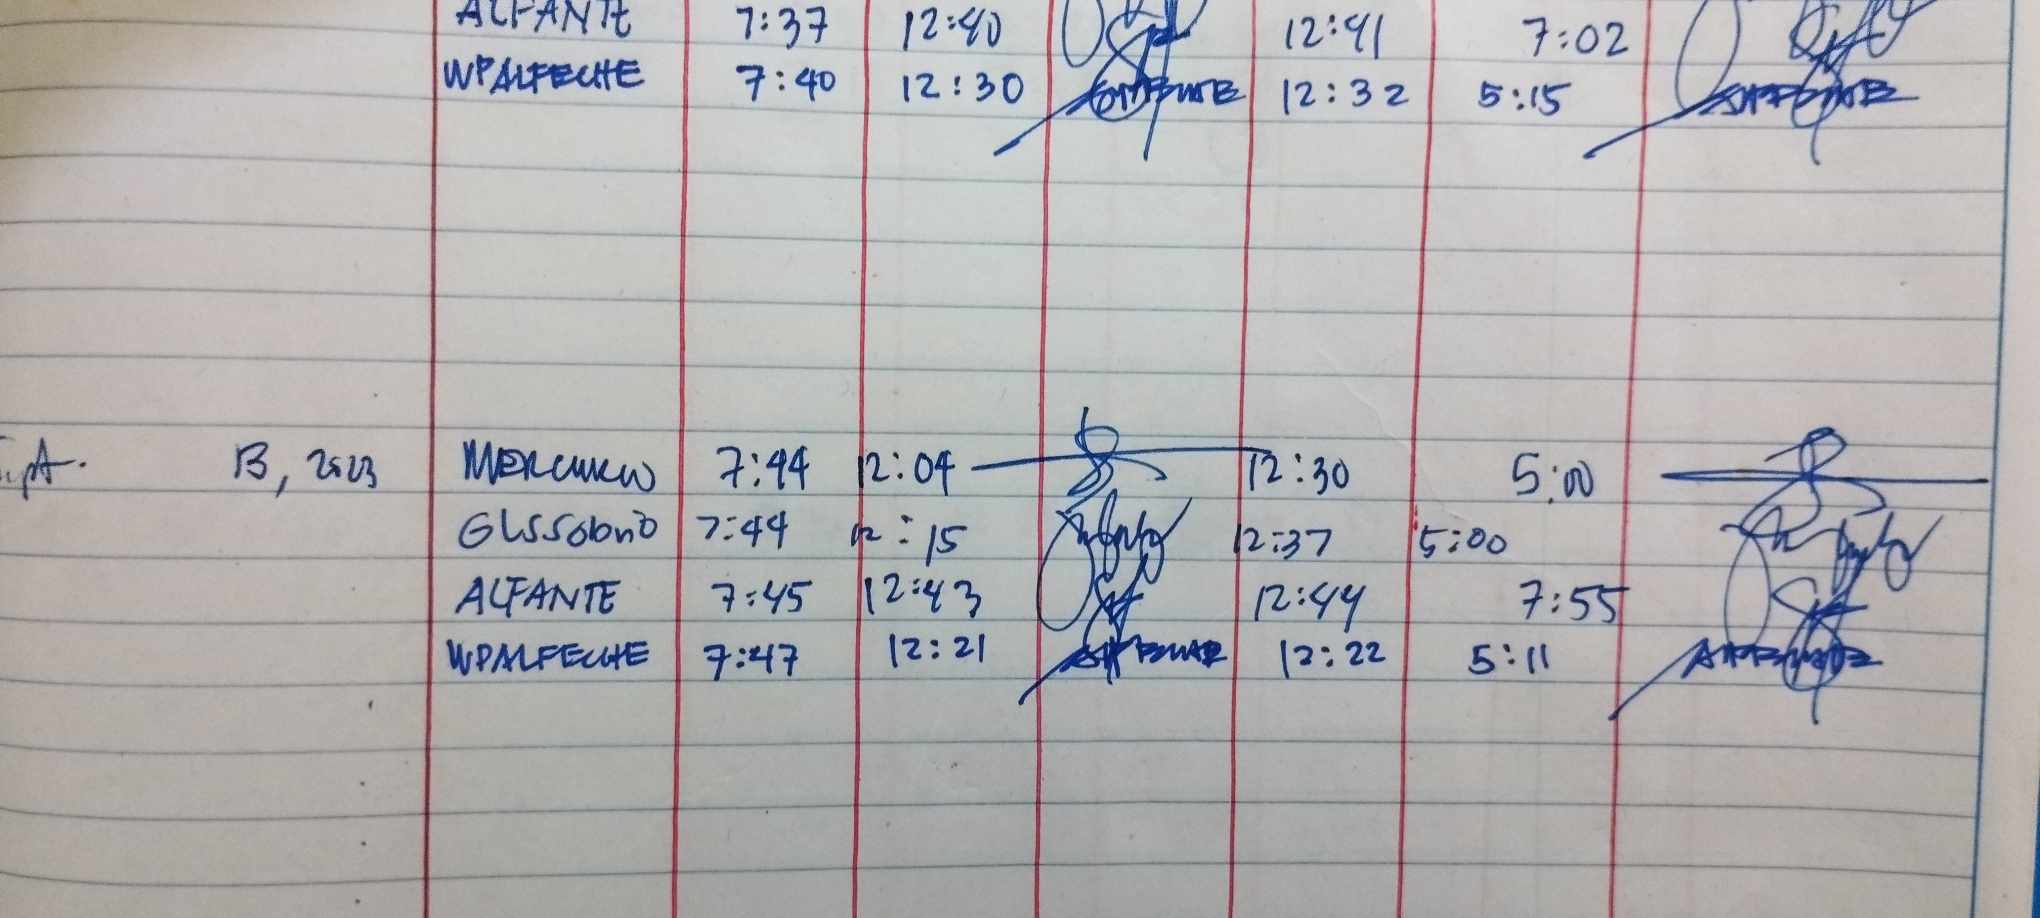 ALFANTE 7:37 12:40 12:41 7:02
WPALFECHE 7:40 12:30 12:32 5:15
13, 2023 MERCURIO 7:44 12:04 12:30 5:00
7:44 12:15 12:37 5:00
ALFANTE 7:45 12:43 12:44 7:55
WPALFECHE 7:47 12:21 12:22 5:11